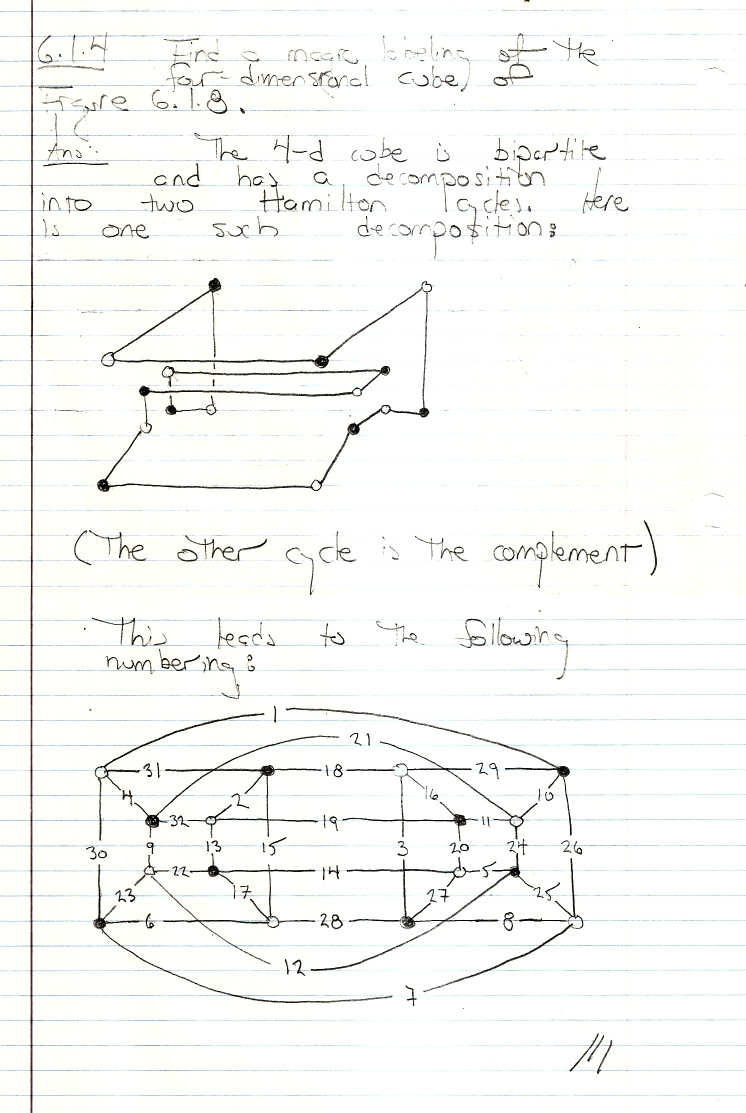 6.1.4 Find a magic labeling of the
four-dimensional cube of
Figure 6.1.8.
Ans: The 4-d cube is bipartite
and has a decomposition
into two Hamilton cycles. Here
is one such decomposition:
(The other cycle is the complement)
This leads to the following
numbering:
1
21
31 18 29
4 2 16 10
32 19 11
30 9 13 15 3 20 24 26
22 14 5
23 17 27 25
6 28 8
12
7